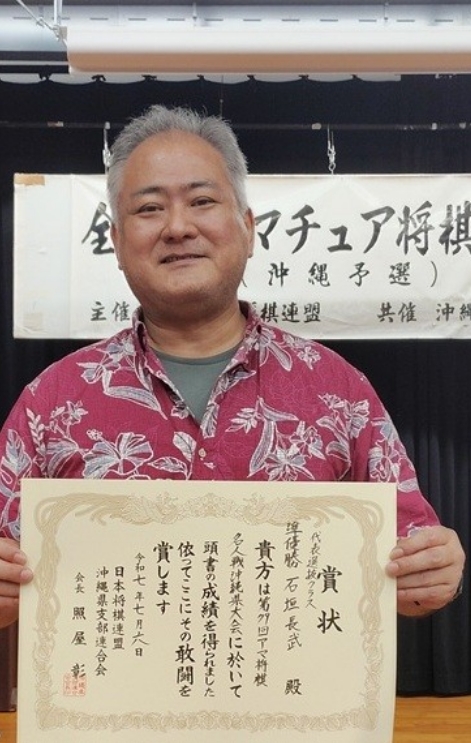 全
マチュア将棋
（沖縄予選）
主催
棋連盟 共催 沖縄
賞状
代表選抜クラス
準優勝 石垣長武 殿
貴方は第79回アマ将棋
名人戦沖縄県大会に於いて
頭書の成績を得られました
依ってここにその敢闘を
賞します
令和七年七月六日
日本将棋連盟
沖縄県支部連合会
会長 照屋 彰